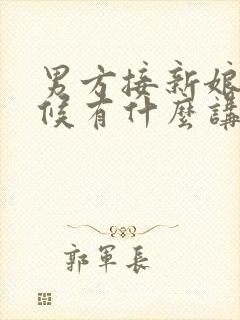 男方接新娘
候有什麼講
郭軍長